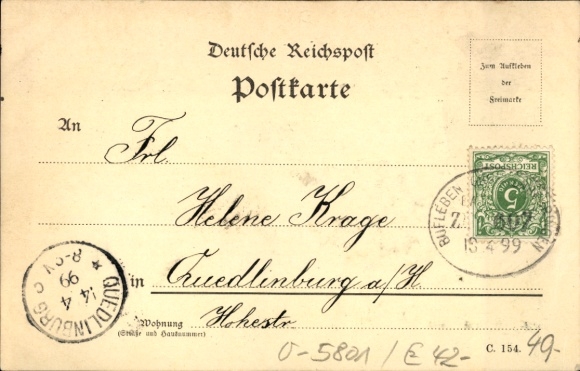 Deutsche Reichspost
Postkarte
Zum Aufkleben
der
Freimarke
An
Frl.
Helene Krage
in Quedlinburg a/H.
Wohnung
(Straße und Hausnummer)
Hohestr
REICHSPOST
5
BUFLEBEN
18 4 99
QUEDLINBURG C
14 4
99
8-9V
C. 154.
0-5801/E 42-
49-